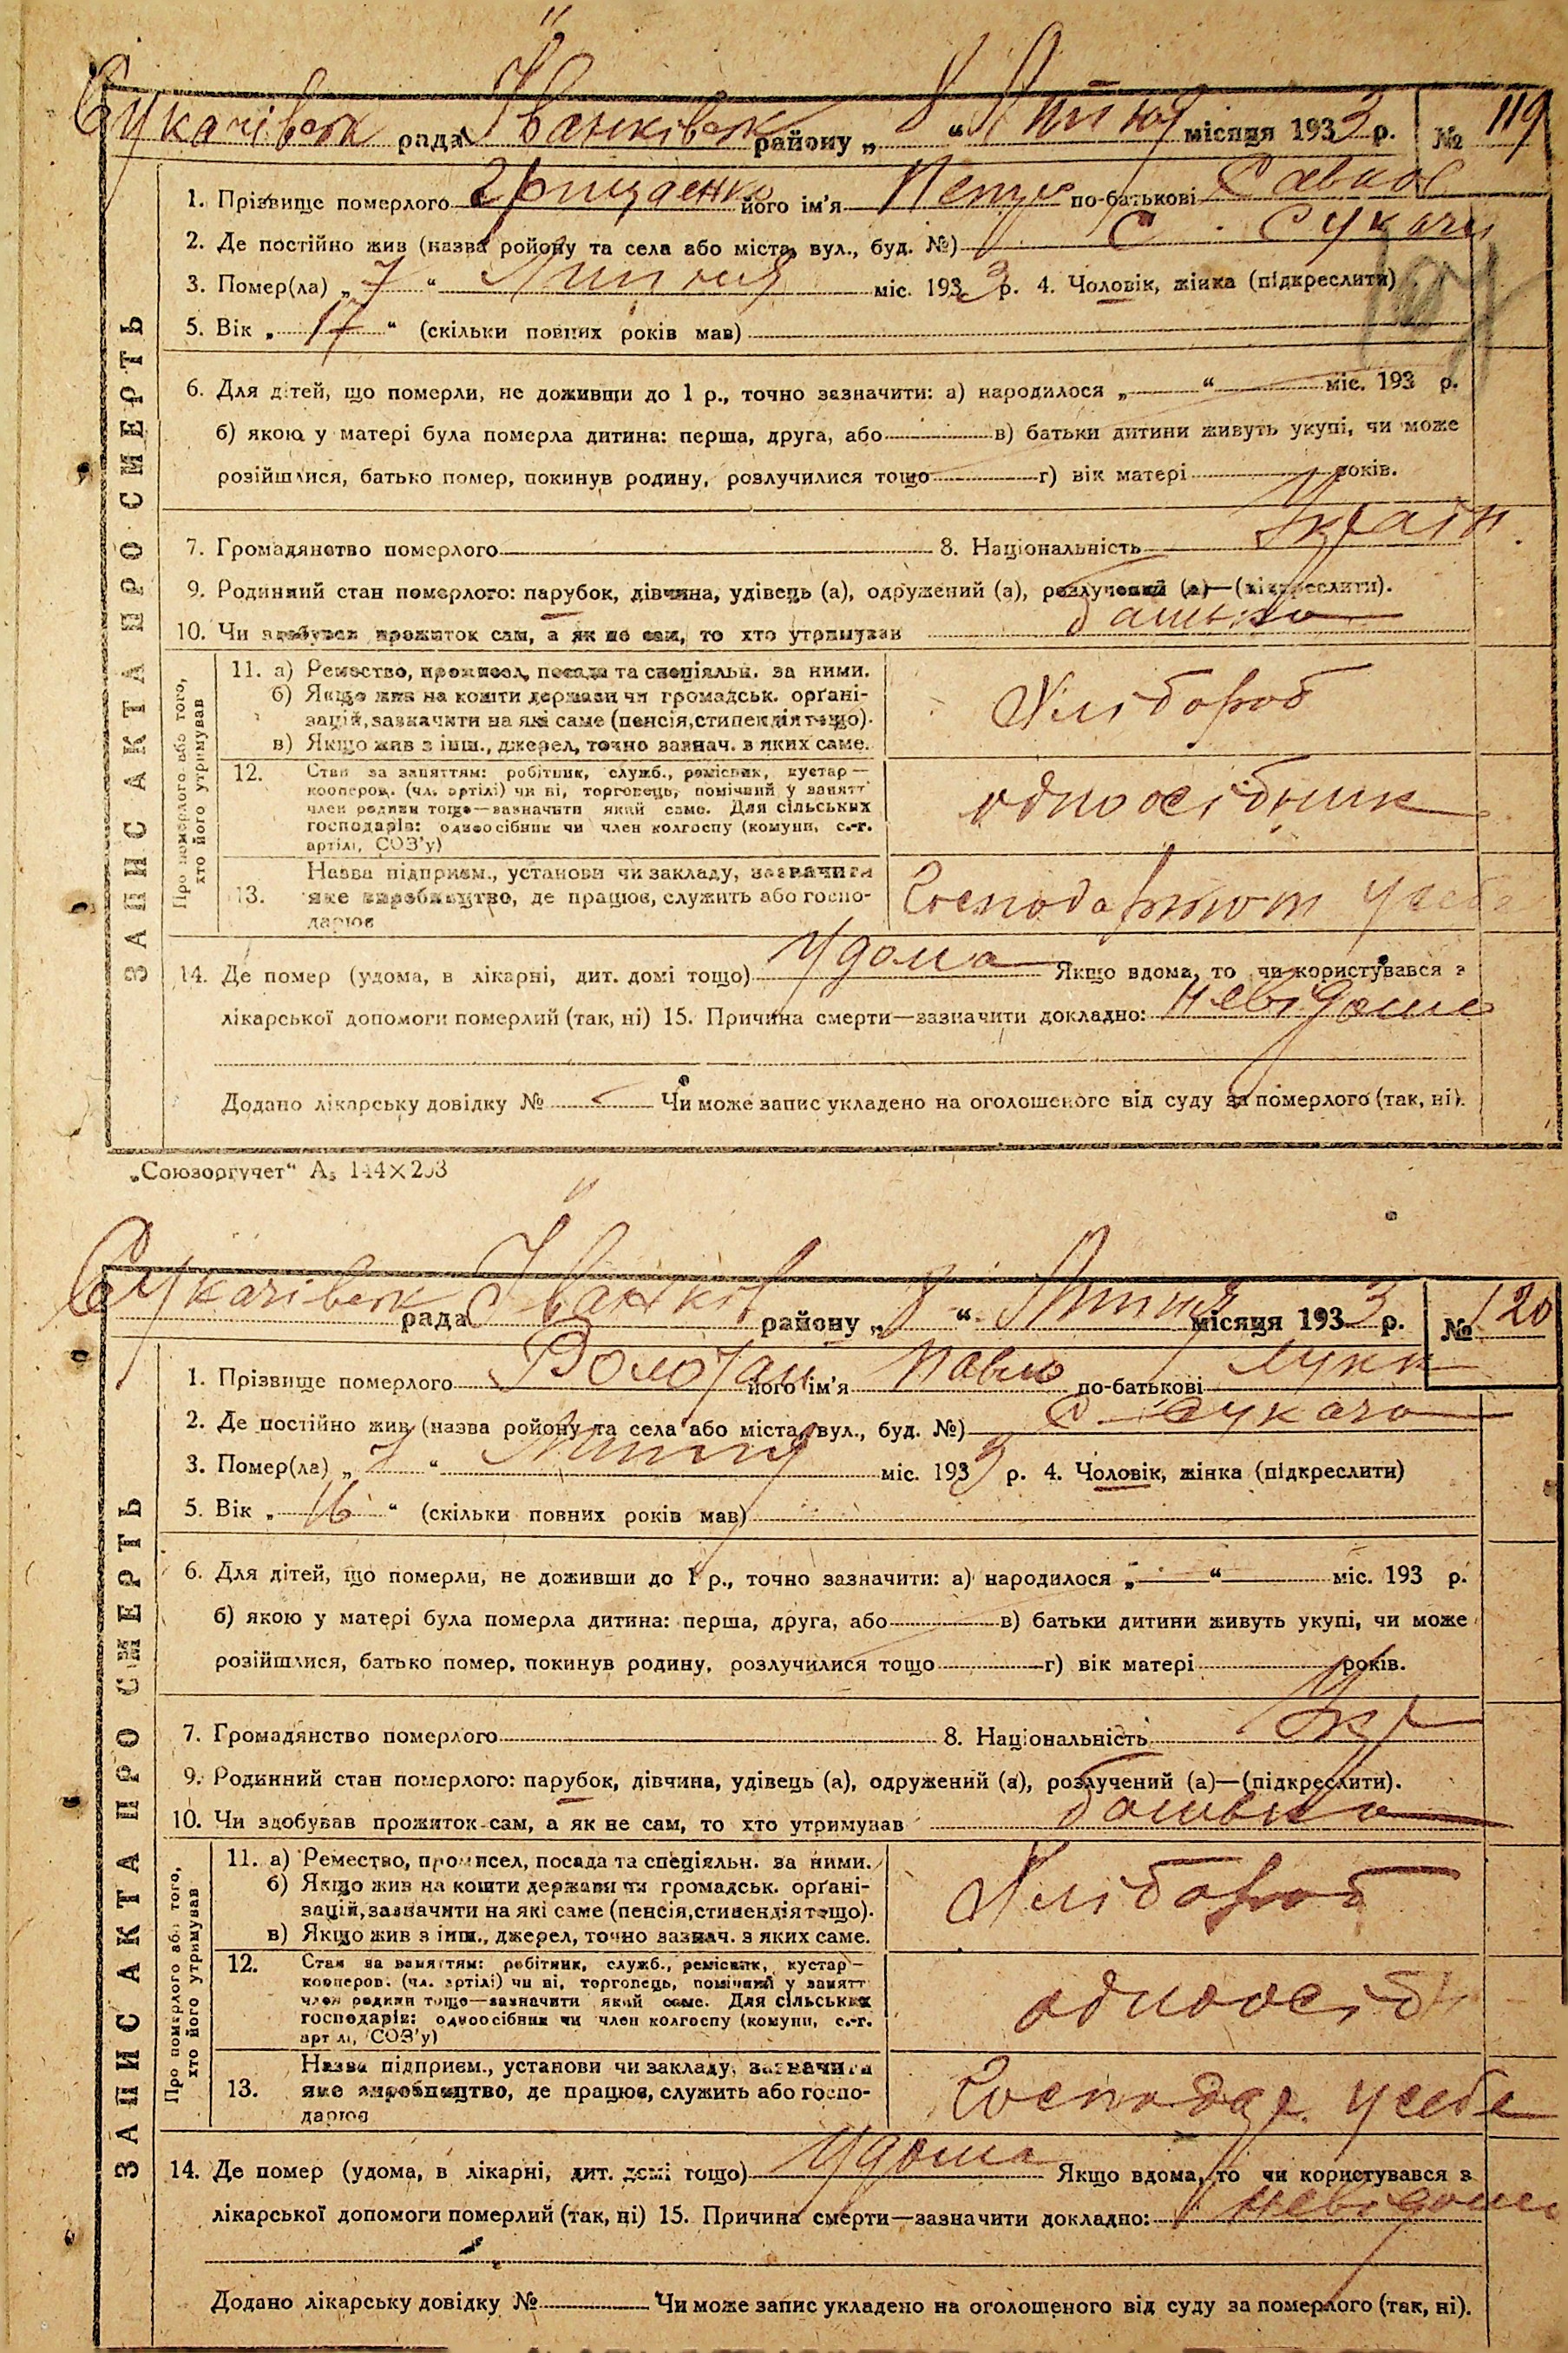 Сукачівськ рада Іванківськ району „ 8 “ Липня місяця 1933 р. № 119
1. Прізвище померлого Грищенко його ім'я Петро по-батькові Савков
2. Де постійно жив (назва ройону та села або міста, вул., буд. №) С. Сукачі
3. Помер(ла) „ 7 “ Липня міс. 1933 р. 4. Чоловік, жінка (підкреслити)
5. Вік „ 17 “ (скільки повних років мав)
6. Для дітей, що померли, не доживши до 1 р., точно зазначити: а) народилося „ “ міс. 193 р.
б) якою у матері була померла дитина: перша, друга, або в) батьки дитини живуть укупі, чи може
розійшлися, батько помер, покинув родину, розлучилися тощо г) вік матері років.
7. Громадянство померлого 8. Національність Україн.
9. Родинний стан померлого: парубок, дівчина, удівець (а), одружений (а), розлучений (а)—(підкреслити).
10. Чи здобував прожиток сам, а як не сам, то хто утримував батько
ЗАПИС АКТА ПРО СМЕРТЬ
Про померлого або того,
хто його утримував
11. а) Ремество, промисел, посада та спеціяльн. за ними.
б) Якщо жив на кошти держави чи громадськ. орґані-
зацій, зазначити на які саме (пенсія, стипендія тощо).
в) Якщо жив з інш., джерел, точно зазнач. з яких саме.
Хлібороб
12. Стан за заняттям: робітник, служб., ремісник, кустар—
кооперов. (чл. артілі) чи ні, торговець, помічний у занятт
член родини тощо—зазначити який саме. Для сільських
господарів: одноосібник чи член колгоспу (комуни, с.-г.
артілі, СОЗ'у)
одноосібник
13. Назва підприєм., установи чи закладу, зазначити
яке виробництво, де працює, служить або госпо-
дарює
усебе
14. Де помер (удома, в лікарні, дит. домі тощо) Удома Якщо вдома, то чи користувався з
лікарської допомоги померлий (так, ні) 15. Причина смерти—зазначити докладно: невідома
Додано лікарську довідку № Чи може запис укладено на оголошеного від суду за померлого (так, ні).
„Союзоргучет“ А₅ 144×203
Сукачівськ рада Іванків району „ 8 “ Липня місяця 1933 р. № 120
1. Прізвище померлого його ім'я Павло по-батькові Луки
2. Де постійно жив (назва ройону та села або міста, вул., буд. №) С. Сукачо
3. Помер(ла) „ 7 “ Липня міс. 1933 р. 4. Чоловік, жінка (підкреслити)
5. Вік „ 16 “ (скільки повних років мав)
6. Для дітей, що померли, не доживши до 1 р., точно зазначити: а) народилося „ “ міс. 193 р.
б) якою у матері була померла дитина: перша, друга, або в) батьки дитини живуть укупі, чи може
розійшлися, батько помер, покинув родину, розлучилися тощо г) вік матері років.
7. Громадянство померлого 8. Національність Укр
9. Родинний стан померлого: парубок, дівчина, удівець (а), одружений (а), розлучений (а)—(підкреслити).
10. Чи здобував прожиток сам, а як не сам, то хто утримував батько
ЗАПИС АКТА ПРО СМЕРТЬ
Про померлого або того,
хто його утримував
11. а) Ремество, промисел, посада та спеціяльн. за ними.
б) Якщо жив на кошти держави чи громадськ. орґані-
зацій, зазначити на які саме (пенсія, стипендія тощо).
в) Якщо жив з інш., джерел, точно зазнач. з яких саме.
Хлібороб
12. Стан за заняттям: робітник, служб., ремісник, кустар—
кооперов. (чл. артілі) чи ні, торговець, помічний у занятт
член родини тощо—зазначити який саме. Для сільських
господарів: одноосібник чи член колгоспу (комуни, с.-г.
артілі, СОЗ'у)
одноосіб
13. Назва підприєм., установи чи закладу, зазначити
яке виробництво, де працює, служить або госпо-
дарює
Господар. усебе
14. Де помер (удома, в лікарні, дит. домі тощо) Удома Якщо вдома, то чи користувався з
лікарської допомоги померлий (так, ні) 15. Причина смерти—зазначити докладно: невідома
Додано лікарську довідку № Чи може запис укладено на оголошеного від суду за померлого (так, ні).